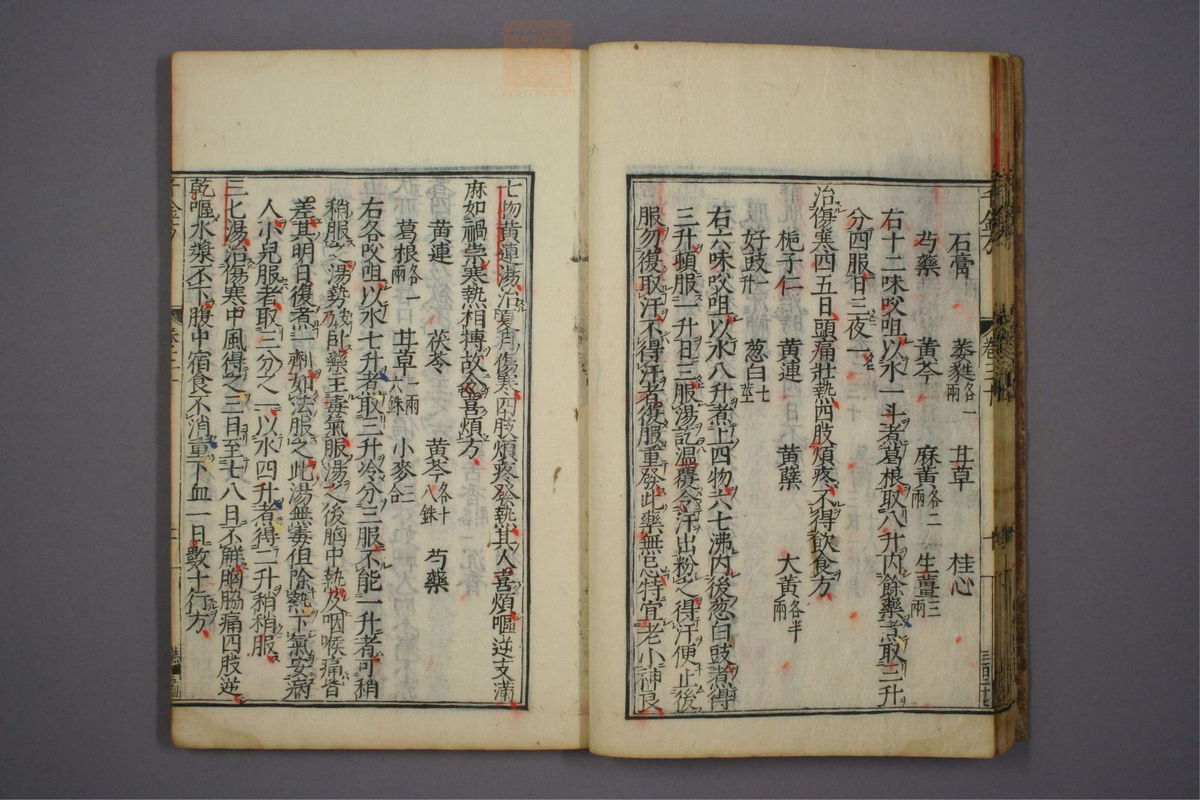 石膏 葳蕤各一兩 甘草 桂心
芍藥 黃芩 麻黃各二兩 生薑三兩
右十二味㕮咀以水一斗煮葛根取八升内餘藥煮取三升
分四服日三夜一
治傷寒四五日頭痛壯熱四肢煩疼不得飲食方
梔子仁 黃連 黃蘗 大黃各半兩
好豉一升 葱白七莖
右六味㕮咀以水八升煮上四物六七沸内後葱白豉煮得
三升頓服一升日三服湯訖溫覆令汗出粉之得汗便止後
服勿復取汗不得汗者復服重發此藥無忌特宜老小神良
七物黃連湯治夏月傷寒四肢煩疼發熱其人喜煩嘔逆支滿
麻如禍祟寒熱相搏故令喜煩方
黃連 茯苓 黃芩各十八銖 芍藥
葛根各一兩 甘草一兩六銖 小麥三合
右各㕮咀以水七升煮取三升冷分三服不能一升者可稍
稍服之湯勢乃卧藥主毒氣服湯之後胸中熱及咽喉痛皆
差其明日復煮一劑如法服之此湯無毒但除熱下氣安病
人小兒服者取三分之一以水四升煮得二升稍稍服
三七湯治傷寒中風得之三日至七八日不解胸脇痛四肢逆
乾嘔水漿不下腹中宿食不消重下血一日數十行方